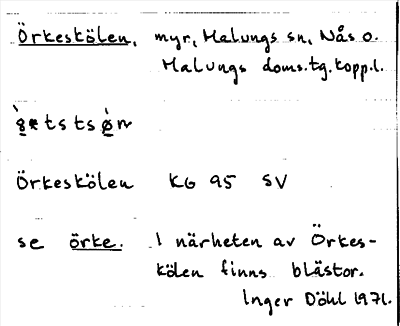 Örkeskölen, myr, Malungs sn, Nås o.
Malungs doms.tg. kopp.l.
Örkeskölen KG 95 SV
se örke. I närheten av Örkes-
kölen finns blästor.
Inger Döhl 1971.